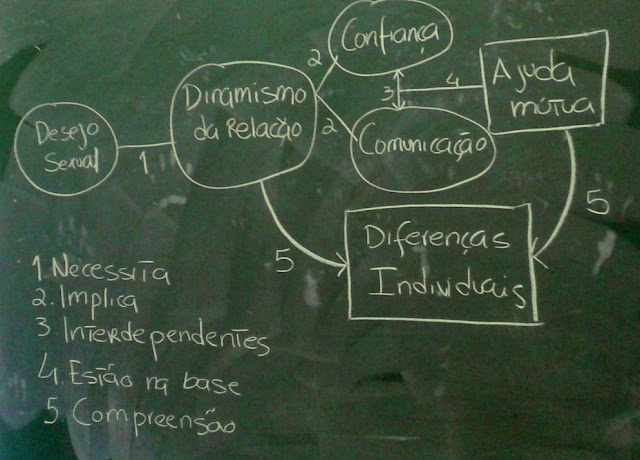 Confiança
2
Ajuda
mútua
3
4
Dinamismo
da Relação
2
Comunicação
Desejo
Sexual
1
5
5
Diferenças
Individuais
1. Necessita
2. Implica
3 Interdependentes
4. Estão na base
5 Compreensão